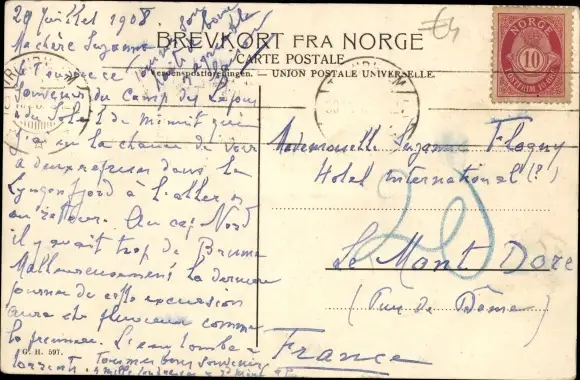 20 Juillet 1908.
Ma chère Suzanne
BREVKORT FRA NORGE
CARTE POSTALE
UNION POSTALE UNIVERSELLE.
NORGE
10
Je t'envoie ce
souvenir du Camp des Lapons
du Soleil de minuit que
j'ai eu la chance de voir
à deux reprises dans le
Lyngenfjord à l'aller et
au retour. Au cap Nord
il y avait trop de Brume
Malheureusement la dernière
journée de cette excursion
aura été pluvieuse comme
la première. L'eau tombe à
torrents.
G. H. 597.
Mademoiselle Suzanne Flogny
Hotel international (?)
20
Le Mont Dore
(Puy de Dôme)
France